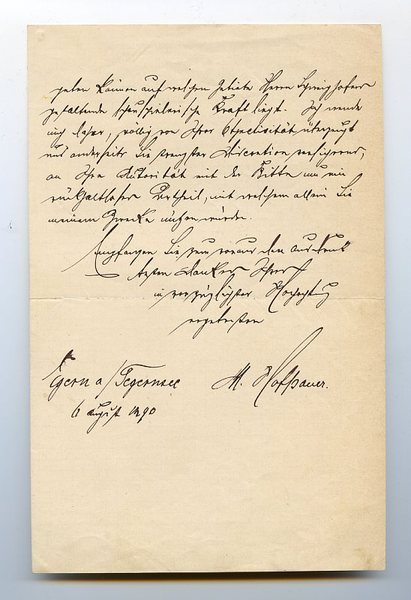 geben können auf welchem Gebiete Herrn Schweighofers
gestaltende schauspielerische Kraft liegt. Ich wende
mich daher, völlig von Ihrer Objectivität überzeugt
und anderseits Sie strengster Discretion versichernd,
an Ihre Autorität mit der Bitte um ein
rückhaltloses Urtheil, mit welchem allein Sie
meinem Zwecke nützen würden.
Empfangen Sie im voraus den Ausdruck
Dankes Ihres
in vorzüglichster Hochachtung
ergebensten
Egern a/Tegernsee M. Hofpauer.
6 August 1890